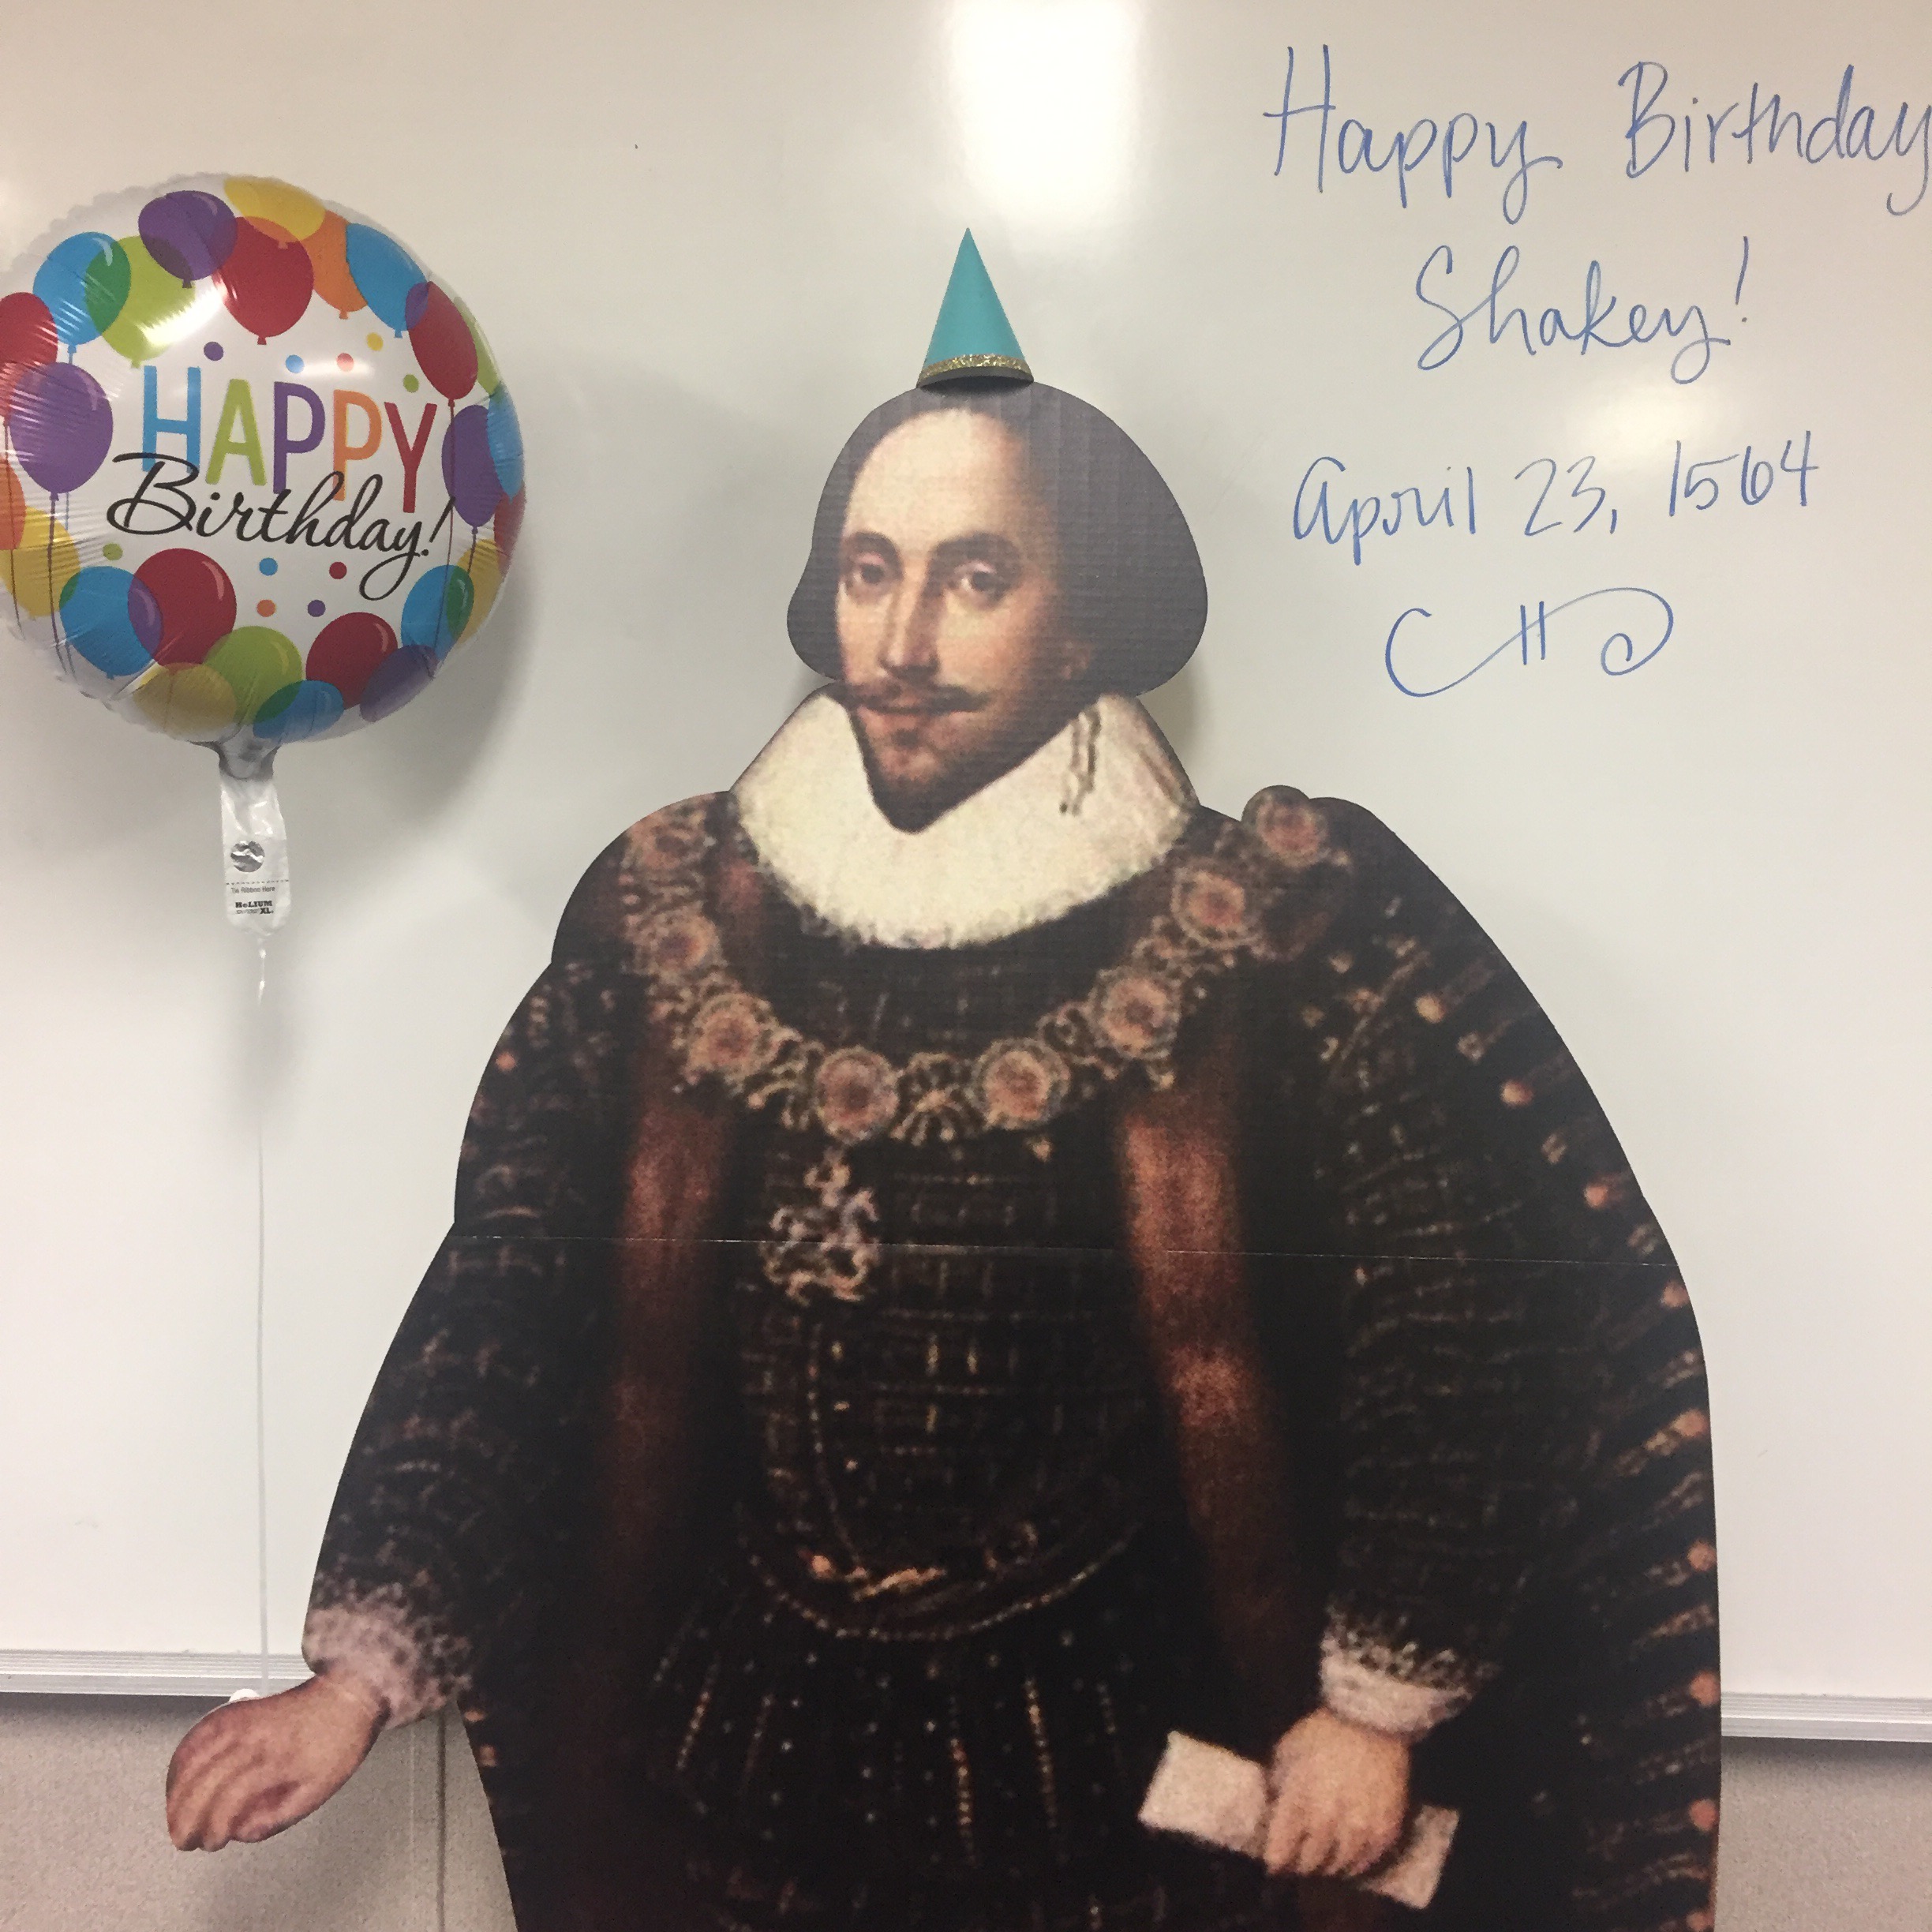 HAPPY
Birthday!
Tie Ribbon Here
HeLIUM
XL
Happy Birthday
Shakey!
April 23, 1564